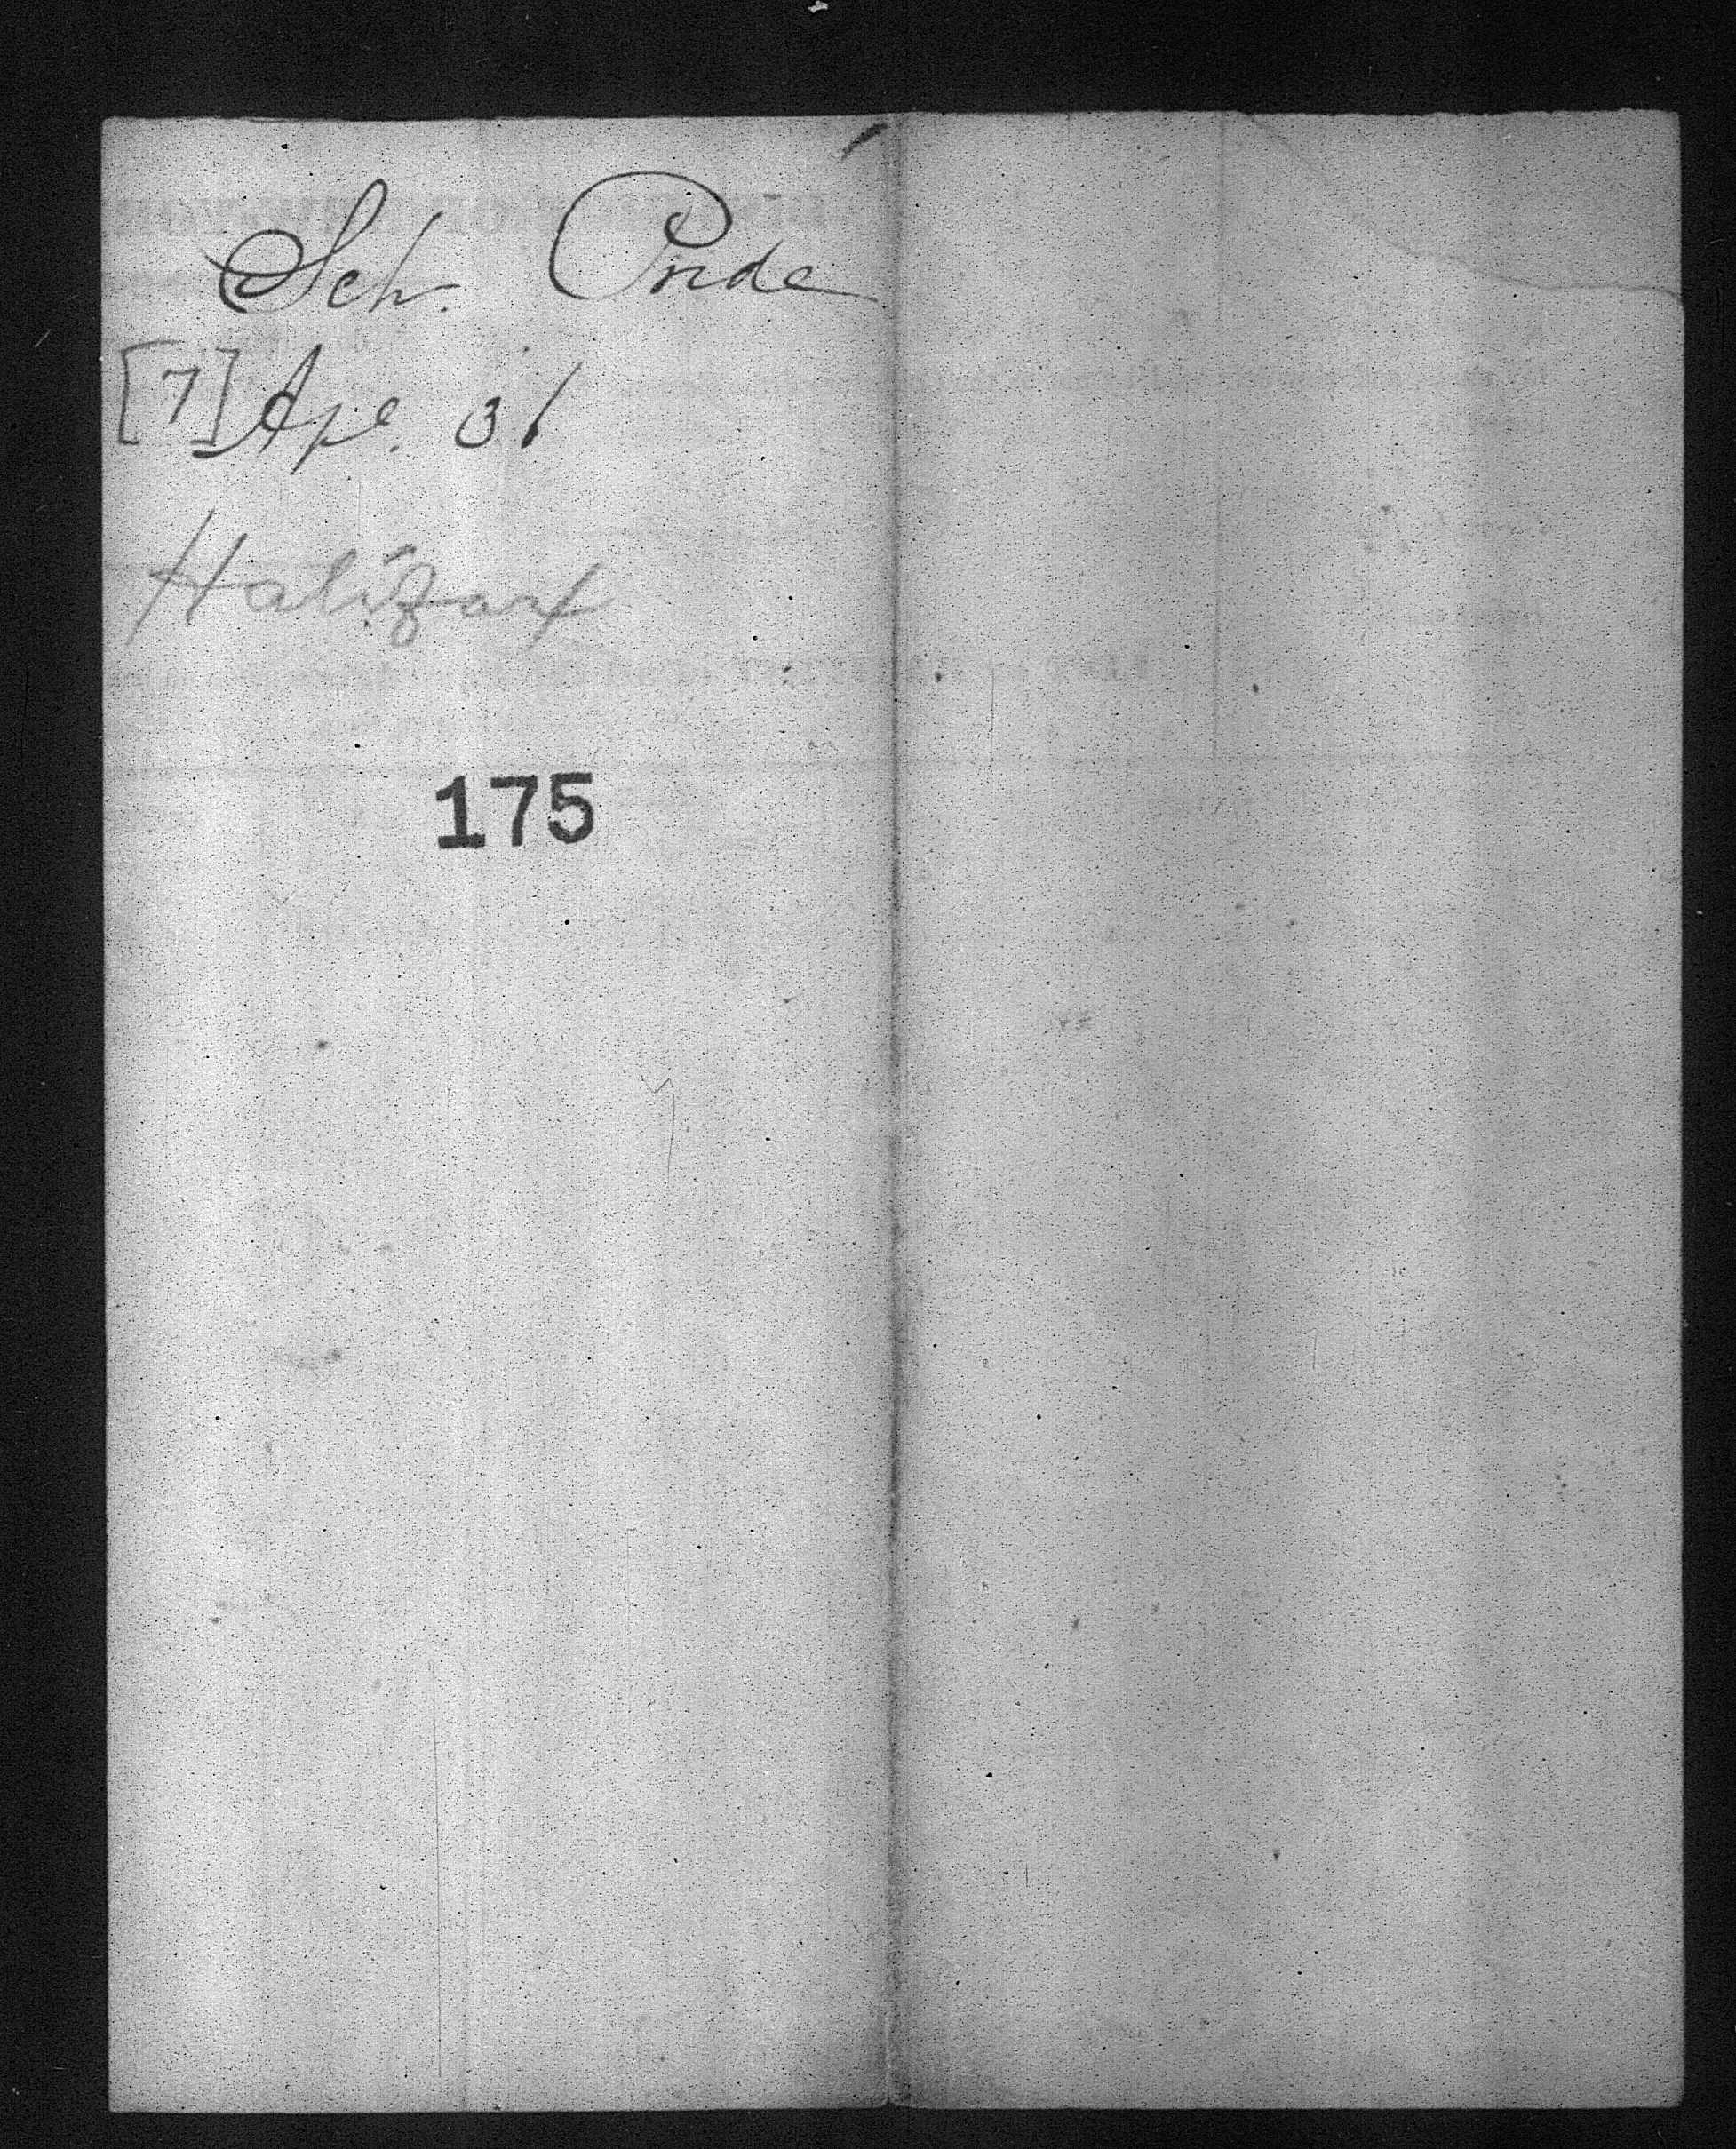 Sch. Pride
[7] Apl. 31
Halifax
175